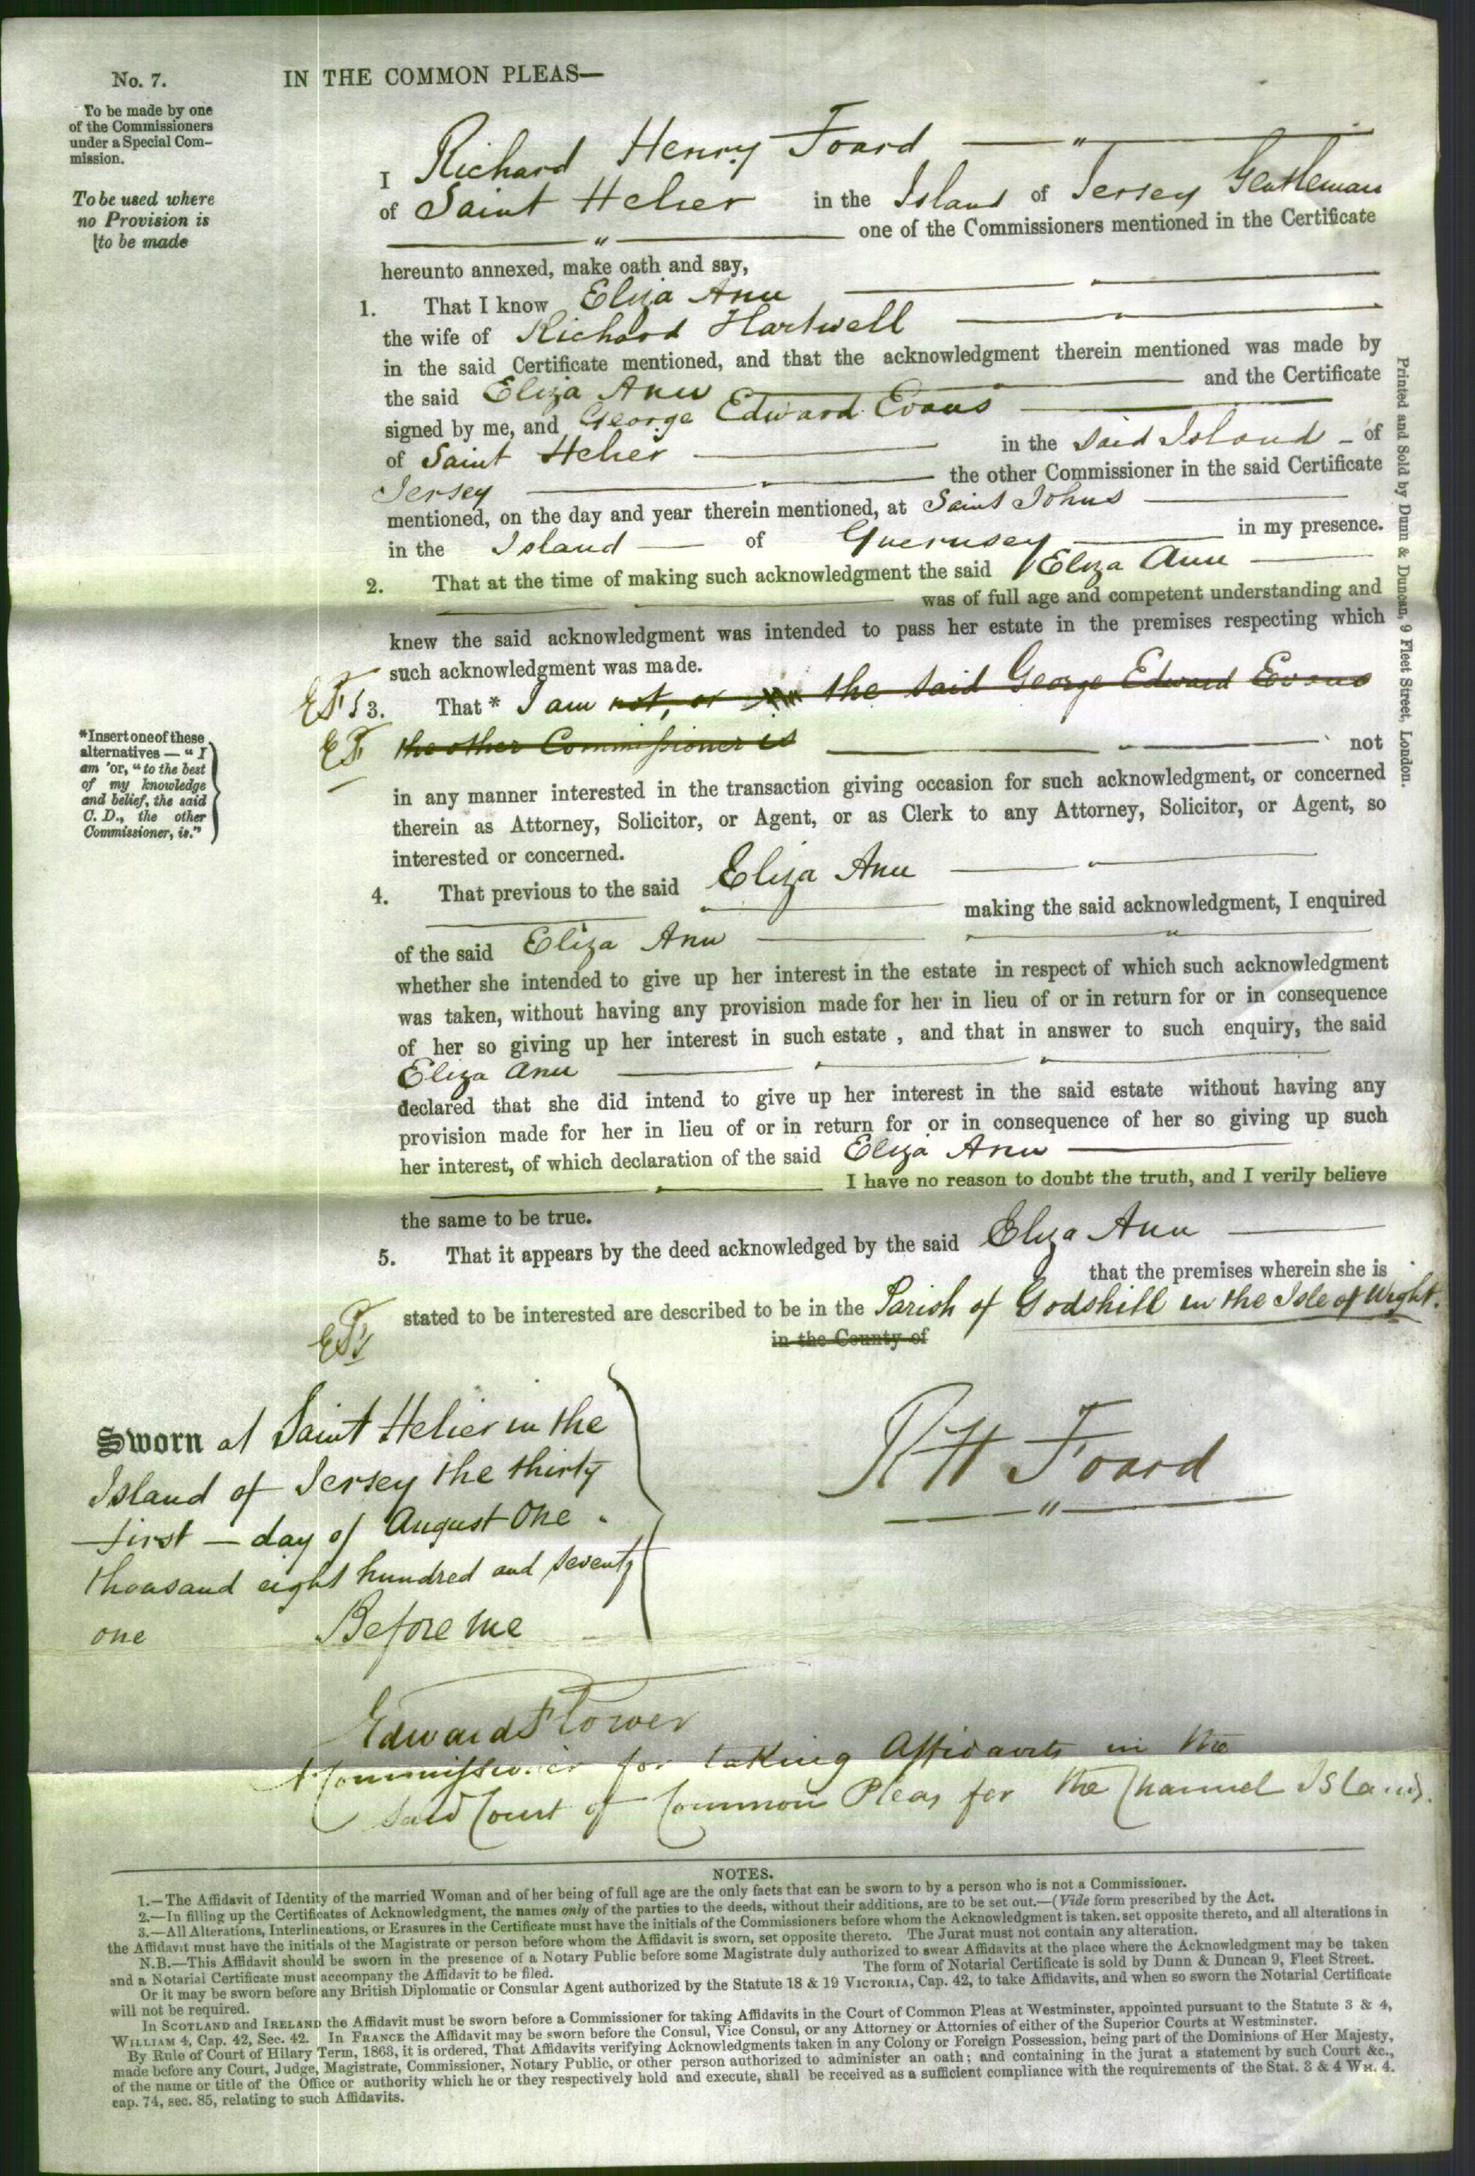 No. 7.
IN THE COMMON PLEAS—
To be made by one
of the Commissioners
under a Special Com-
mission.
To be used where
no Provision is
to be made
I Richard Henry Foard
of Saint Helier in the Island of Jersey Gentleman
one of the Commissioners mentioned in the Certificate
hereunto annexed, make oath and say,
1. That I know Eliza Ann
the wife of Richard Hartwell
in the said Certificate mentioned, and that the acknowledgment therein mentioned was made by
the said Eliza Ann and the Certificate
signed by me, and George Edward Evans
of Saint Helier in the said Island of
Jersey the other Commissioner in the said Certificate
mentioned, on the day and year therein mentioned, at Saint Johns
in the Island of Guernsey in my presence.
2. That at the time of making such acknowledgment the said Eliza Ann
was of full age and competent understanding and
knew the said acknowledgment was intended to pass her estate in the premises respecting which
such acknowledgment was made.
EF 3. That * I am not, or the said George Edward Evans
EF the other Commissioner is not
*Insert one of these
alternatives — "I
am" or, "to the best
of my knowledge
and belief, the said
C. D., the other
Commissioner, is."
in any manner interested in the transaction giving occasion for such acknowledgment, or concerned
therein as Attorney, Solicitor, or Agent, or as Clerk to any Attorney, Solicitor, or Agent, so
interested or concerned.
4. That previous to the said Eliza Ann
making the said acknowledgment, I enquired
of the said Eliza Ann
whether she intended to give up her interest in the estate in respect of which such acknowledgment
was taken, without having any provision made for her in lieu of or in return for or in consequence
of her so giving up her interest in such estate , and that in answer to such enquiry, the said
Eliza Ann
declared that she did intend to give up her interest in the said estate without having any
provision made for her in lieu of or in return for or in consequence of her so giving up such
her interest, of which declaration of the said Eliza Ann
I have no reason to doubt the truth, and I verily believe
the same to be true.
5. That it appears by the deed acknowledged by the said Eliza Ann
that the premises wherein she is
stated to be interested are described to be in the Parish of Godshill in the Isle of Wight.
EF in the County of
Sworn at Saint Helier in the
Island of Jersey the thirty
first — day of August One
thousand eight hundred and seventy
one Before me
R H Foard
Edward Flower
A Commissioner for taking Affidavits in the
said Court of Common Pleas for the Channel Islands.
Printed and Sold by Dunn & Duncan, 9 Fleet Street, London.
NOTES.
1.—The Affidavit of Identity of the married Woman and of her being of full age are the only facts that can be sworn to by a person who is not a Commissioner.
2.—In filling up the Certificates of Acknowledgment, the names only of the parties to the deeds, without their additions, are to be set out.—(Vide form prescribed by the Act.
3.—All Alterations, Interlineations, or Erasures in the Certificate must have the initials of the Commissioners before whom the Acknowledgment is taken. set opposite thereto, and all alterations in
the Affidavit must have the initials of the Magistrate or person before whom the Affidavit is sworn, set opposite thereto. The Jurat must not contain any alteration.
N.B.—This Affidavit should be sworn in the presence of a Notary Public before some Magistrate duly authorized to swear Affidavits at the place where the Acknowledgment may be taken
and a Notarial Certificate must accompany the Affidavit to be filed. The form of Notarial Certificate is sold by Dunn & Duncan 9, Fleet Street.
Or it may be sworn before any British Diplomatic or Consular Agent authorized by the Statute 18 & 19 VICTORIA, Cap. 42, to take Affidavits, and when so sworn the Notarial Certificate
will not be required.
In SCOTLAND and IRELAND the Affidavit must be sworn before a Commissioner for taking Affidavits in the Court of Common Pleas at Westminster, appointed pursuant to the Statute 3 & 4,
WILLIAM 4, Cap. 42, Sec. 42. In FRANCE the Affidavit may be sworn before the Consul, Vice Consul, or any Attorney or Attornies of either of the Superior Courts at Westminster.
By Rule of Court of Hilary Term, 1863, it is ordered, That Affidavits verifying Acknowledgments taken in any Colony or Foreign Possession, being part of the Dominions of Her Majesty,
made before any Court, Judge, Magistrate, Commissioner, Notary Public, or other person authorized to administer an oath; and containing in the jurat a statement by such Court &c.,
of the name or title of the Office or authority which he or they respectively hold and execute, shall be received as a sufficient compliance with the requirements of the Stat. 3 & 4 WM. 4.
cap. 74, sec. 85, relating to such Affidavits.